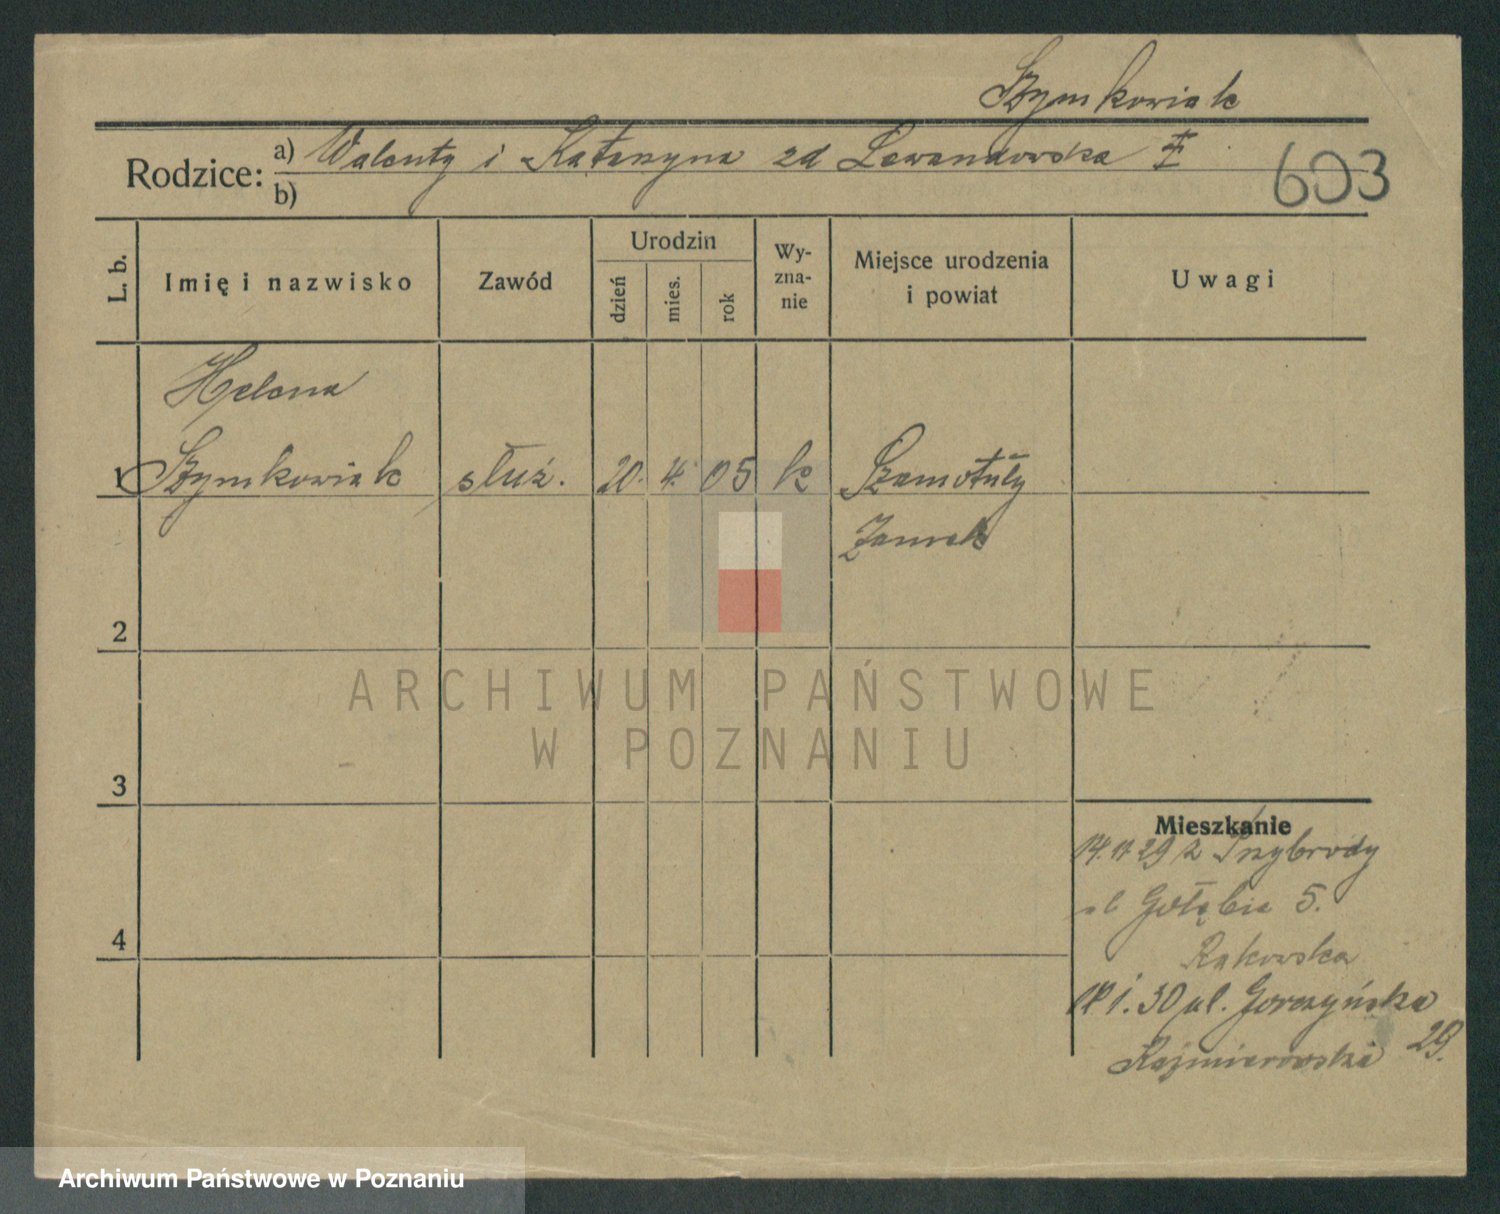 Szymkowiak
Rodzice: a) Walenty i Katarzyna zd Lewandowska
b)
603
L. b.
Imię i nazwisko
Zawód
Urodzin
dzień
mies.
rok
Wy-
zna-
nie
Miejsce urodzenia
i powiat
Uwagi
Helena
1 Szymkowiak służ. 20. 4. 05 k Szamotuły
Zamek
2
ARCHIWUM PAŃSTWOWE
W POZNANIU
3
Mieszkanie
14. 11 29 z Przybrody
ul Gołębia 5.
4
Rakowska
1. 30 ul. Gorczyńska
29.
Kaźmierowska
Archiwum Państwowe w Poznaniu